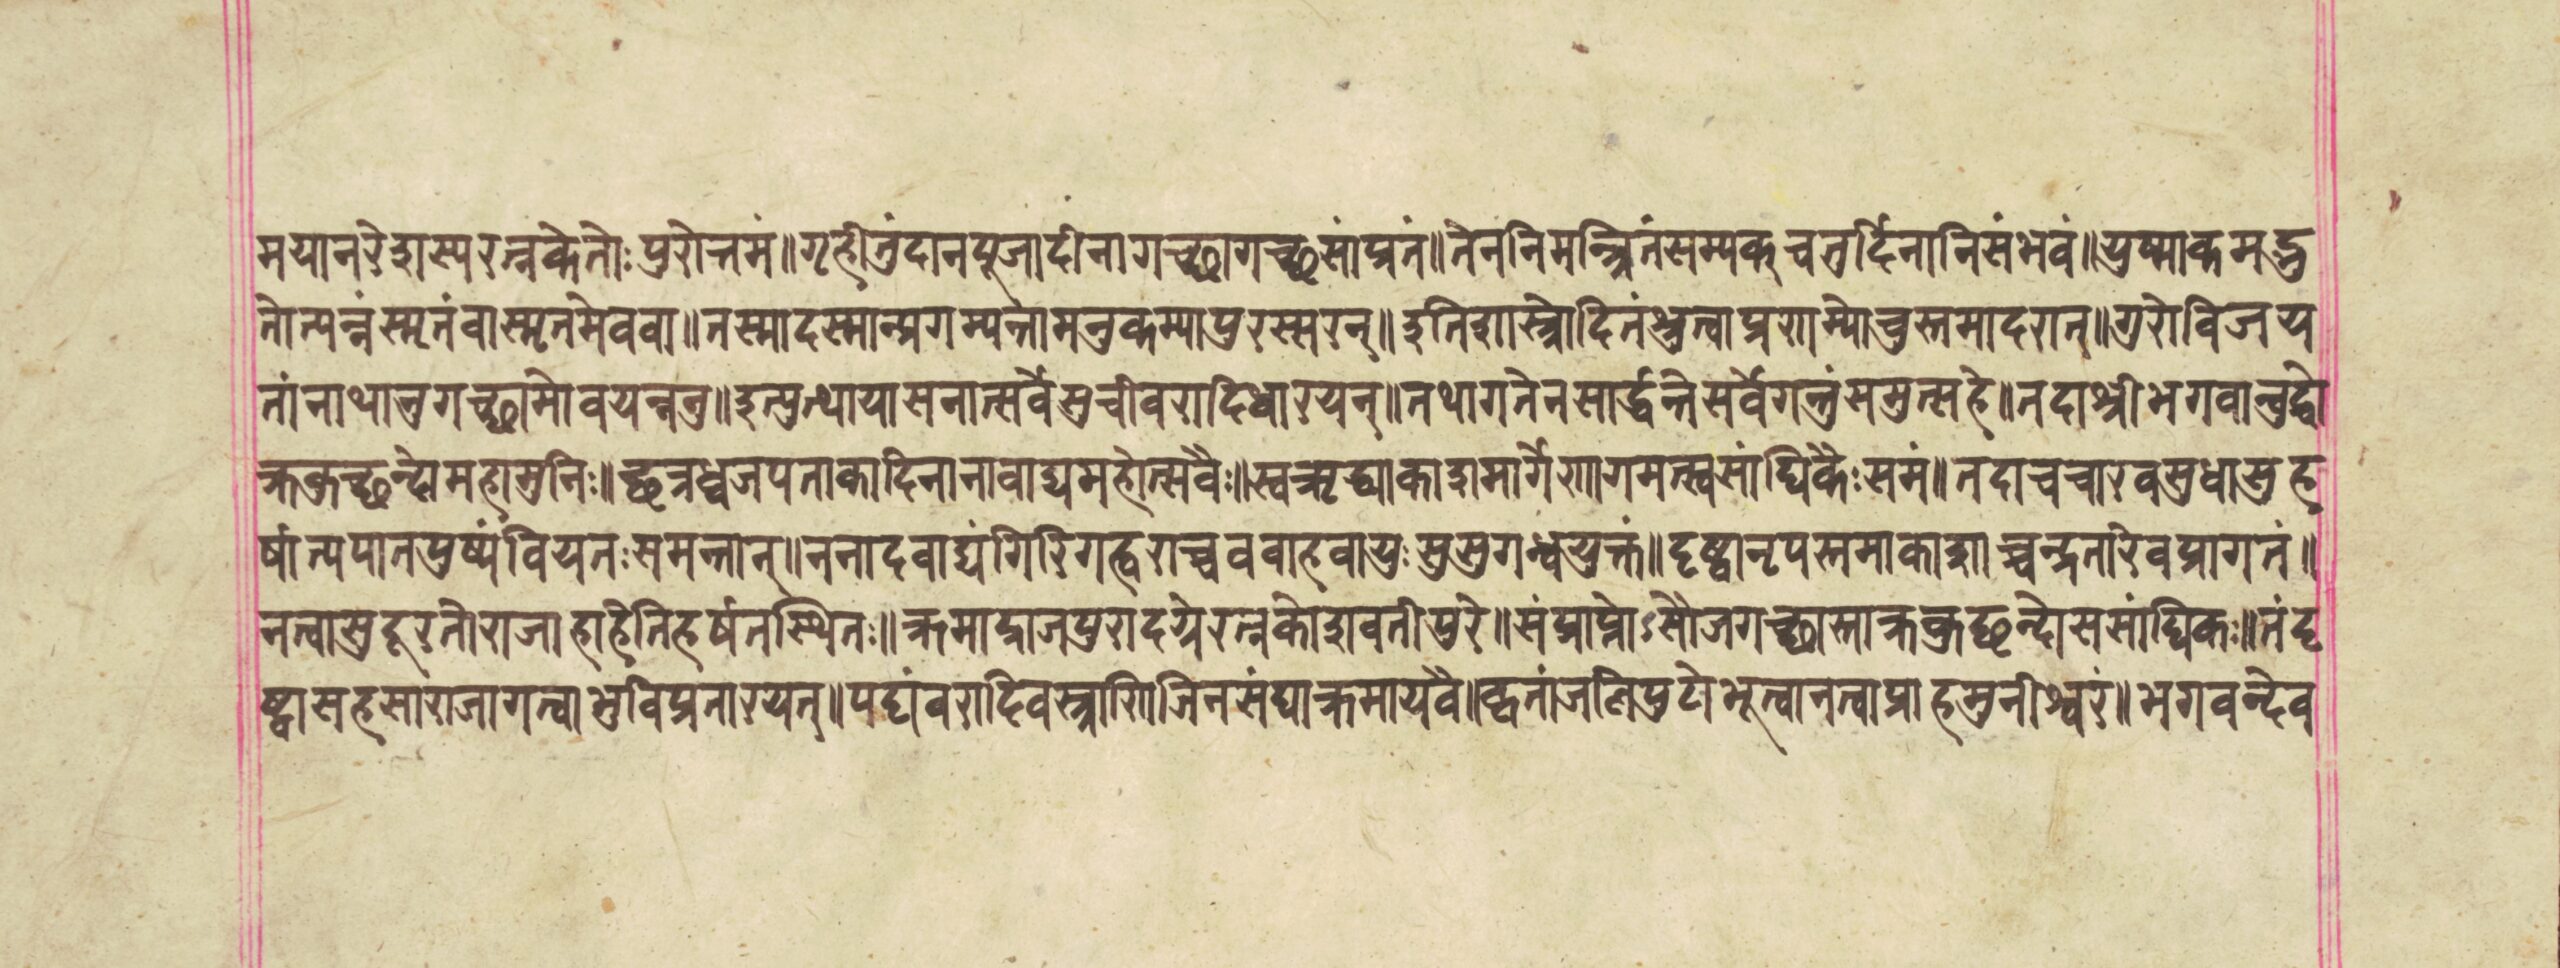 मयानरेशस्यरत्नकेतोःपुरोत्तमं॥गृहीतुंदानपूजादीनागच्छागच्छसांप्रतं॥तेननिमन्त्रितंसम्यक्चतुर्दिनानिसंभवं॥युष्माकमद्भु
तोत्पन्नंस्मृतंवास्मृतमेववा॥तस्मादस्मान्प्रगम्यन्तामनुकम्यापुरस्सरन्॥इतिशास्त्रोदितंश्रुत्वाप्रणम्योचुस्तमादरात्॥गुरोविजय
तांनाथानुगच्छामोवयन्ननु॥इत्युत्थायासनात्सर्वेसुचीवरादिधारयन्॥तथागतेनसार्द्धन्तेसर्वेगन्तुंसमुत्सहे॥तदाश्रीभगवान्बुद्धो
क्रकुच्छन्दोमहामुनिः॥छत्रध्वजपताकादिनानावाद्यमहोत्सवैः॥स्वऋद्ध्याकाशमार्गेणागमत्स्वसांघिकैःसमं॥तदाचचारवसुधासुह
र्षान्पपातपुष्पंवियतःसमन्तात्॥ननादवाद्यंगिरिगह्वराच्चववाहवायुःसुसुगन्धयुक्तं॥दृष्ट्वानृपस्तमाकाशाच्चन्द्रतारेवप्रागतं॥
नत्वासुदूरतोराजाहाहेतिहर्षतस्थितः॥क्रमाद्राजपुरादग्रेरत्नकोशवतीपुरे॥संप्राप्तोऽसौजगच्छास्ताक्रकुछन्दोससांघिकः॥तंदृ
ष्ट्वासहसाराजागत्वाभुविप्रतारयन्॥पट्टांवरादिवस्त्राणिजिनसंघाक्रमायवै॥कृतांजलिपुटोभूत्वानत्वाप्राहमुनीश्वरं॥भगवन्देव